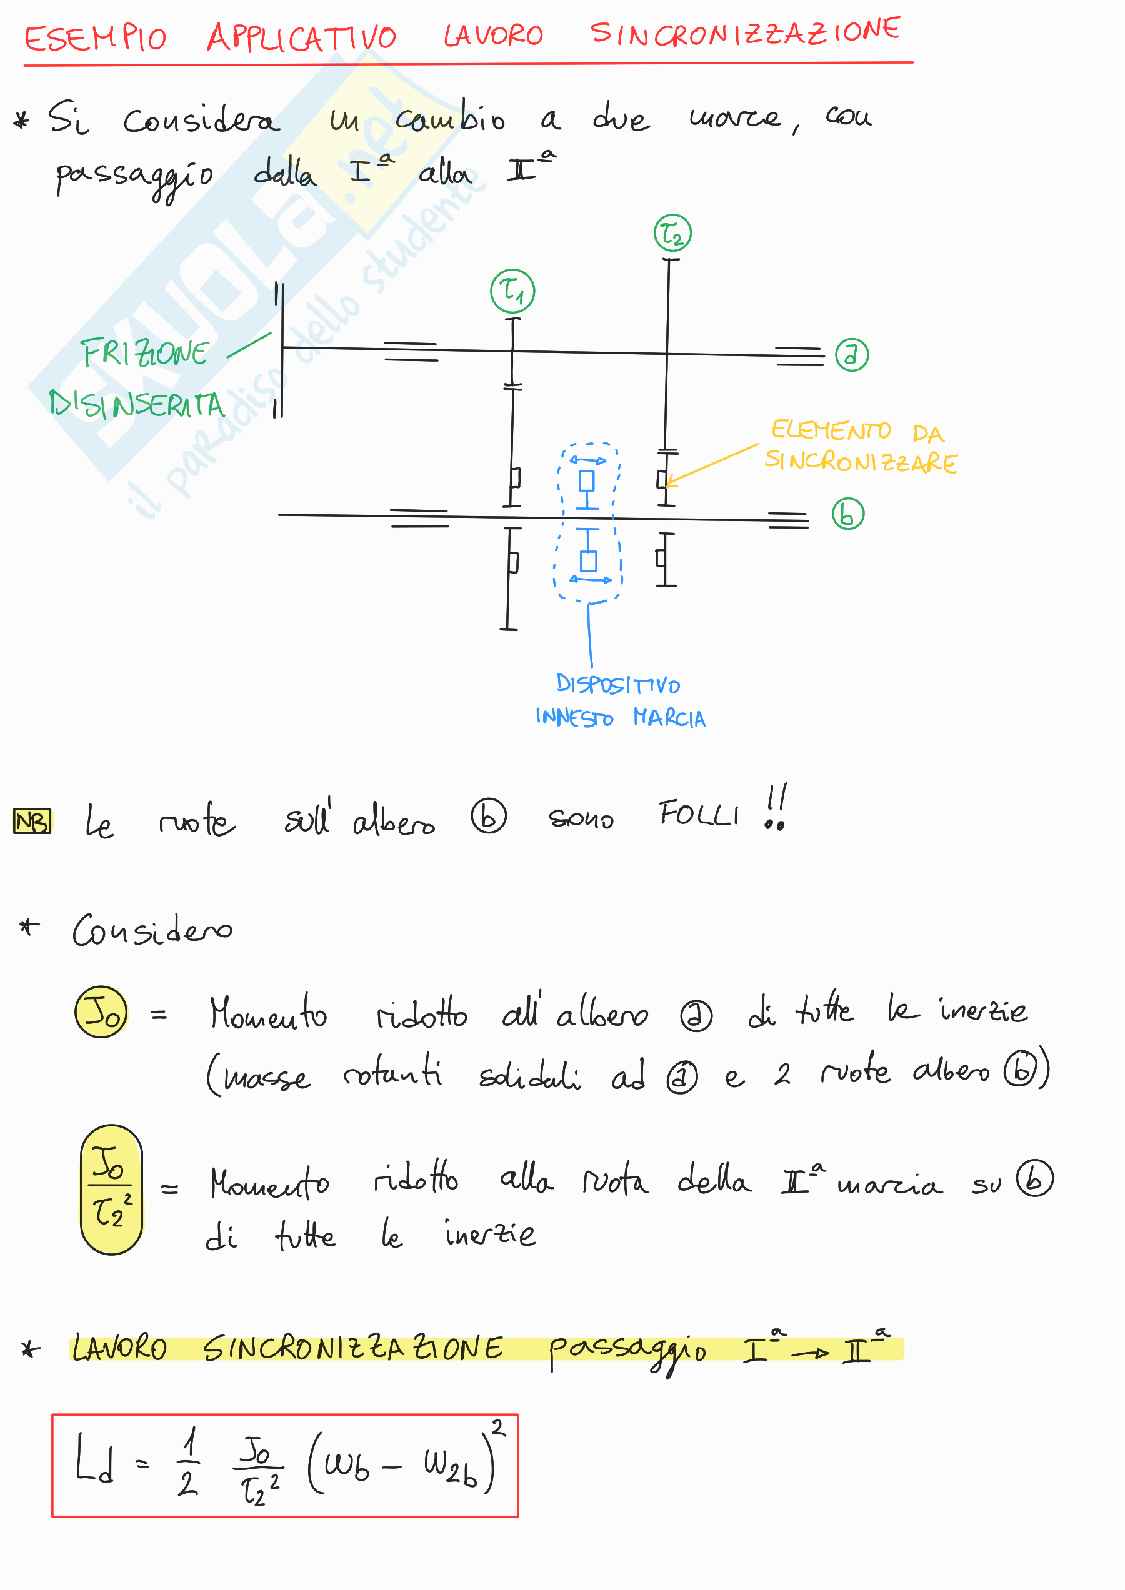 ESEMPIO APPLICATIVO LAVORO SINCRONIZZAZIONE
* Si considera un cambio a due marce, con
passaggio dalla Iª alla IIª
τ2
τ1
FRIZIONE
DISINSERITA
a
ELEMENTO DA
SINCRONIZZARE
b
DISPOSITIVO
INNESTO MARCIA
NB Le ruote sull'albero b sono FOLLI!!
* Considero
J0 = Momento ridotto all'albero a di tutte le inerzie
(masse rotanti solidali ad a e 2 ruote albero b)
J0/τ2² = Momento ridotto alla ruota della IIª marcia su b
di tutte le inerzie
* LAVORO SINCRONIZZAZIONE passaggio Iª → IIª
Ld = 1/2 J0/τ2² (ωb - ω2b)²
SKUOLA.net
il paradiso dello studente